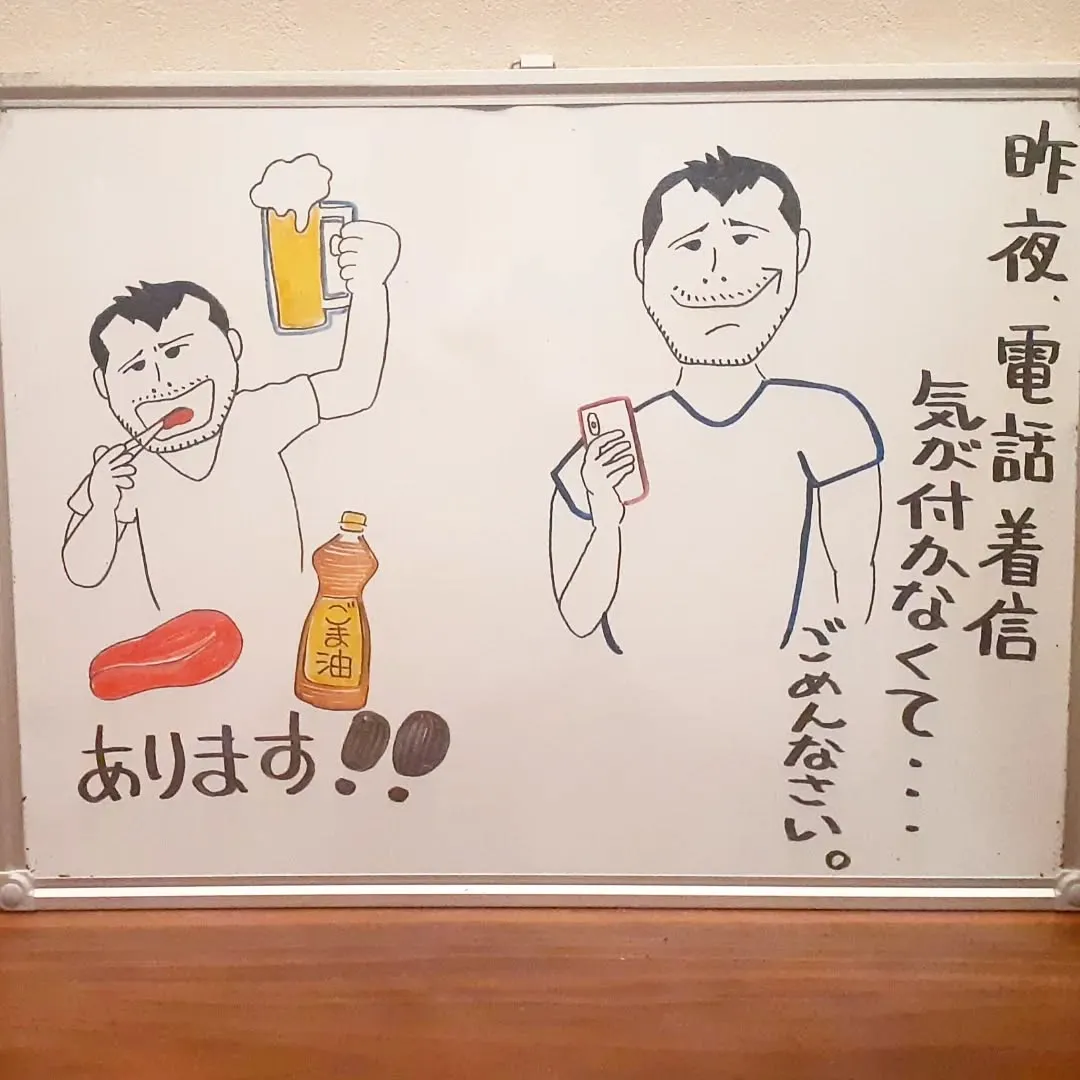 昨夜、電話着信
気が付かなくて・・・
ごめんなさい。
ごま油
あります!!